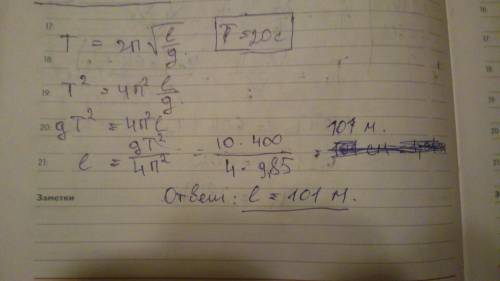 17.
T = 2π√(l/g) T = 20c
18.
19. T² = 4π² l/g.
20. gT² = 4π²l
21. l = gT²/4π² = 10·400/4·9,85 = 101 м.
Заметки Ответ: l = 101 м.
16